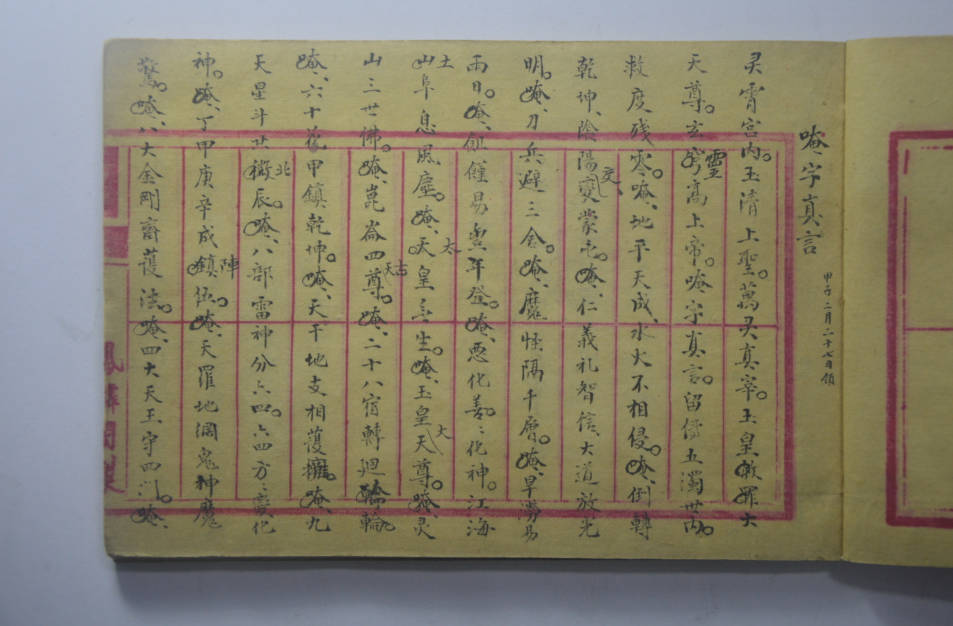 唵字真言 甲子二月二十七日領
灵霄宫内。玉清上聖。萬灵真宰。玉皇赦罪大
天尊。玄穹高上帝。唵字真言。留傳五濁世。
救度残零。唵、地平天成、水火不相侵。唵、倒轉
乾坤、陰陽交蒙屯。唵、仁義礼智信、大道放光
明。唵、刀兵避三舍。唵、魔怪隔千層。唵、旱澇易
雨日。唵、飢饉易豊年登。唵、惡化善。善化神。江海
山土阜息風塵。唵、天皇太生。唵、玉皇大天尊。唵、灵
山三世佛。唵、崑崙四尊。唵、二十八宿轉迴輪
唵、六十花甲鎮乾坤。唵、天干地支相護擁。唵、九
天星斗共北辰。唵、八部雷神分六四。六四方、變化
神。唵、丁甲庚辛成陣伍。唵、天羅地網鬼神魔
驚。唵、八大金剛齊護法。唵、四大天王守四門。唵、